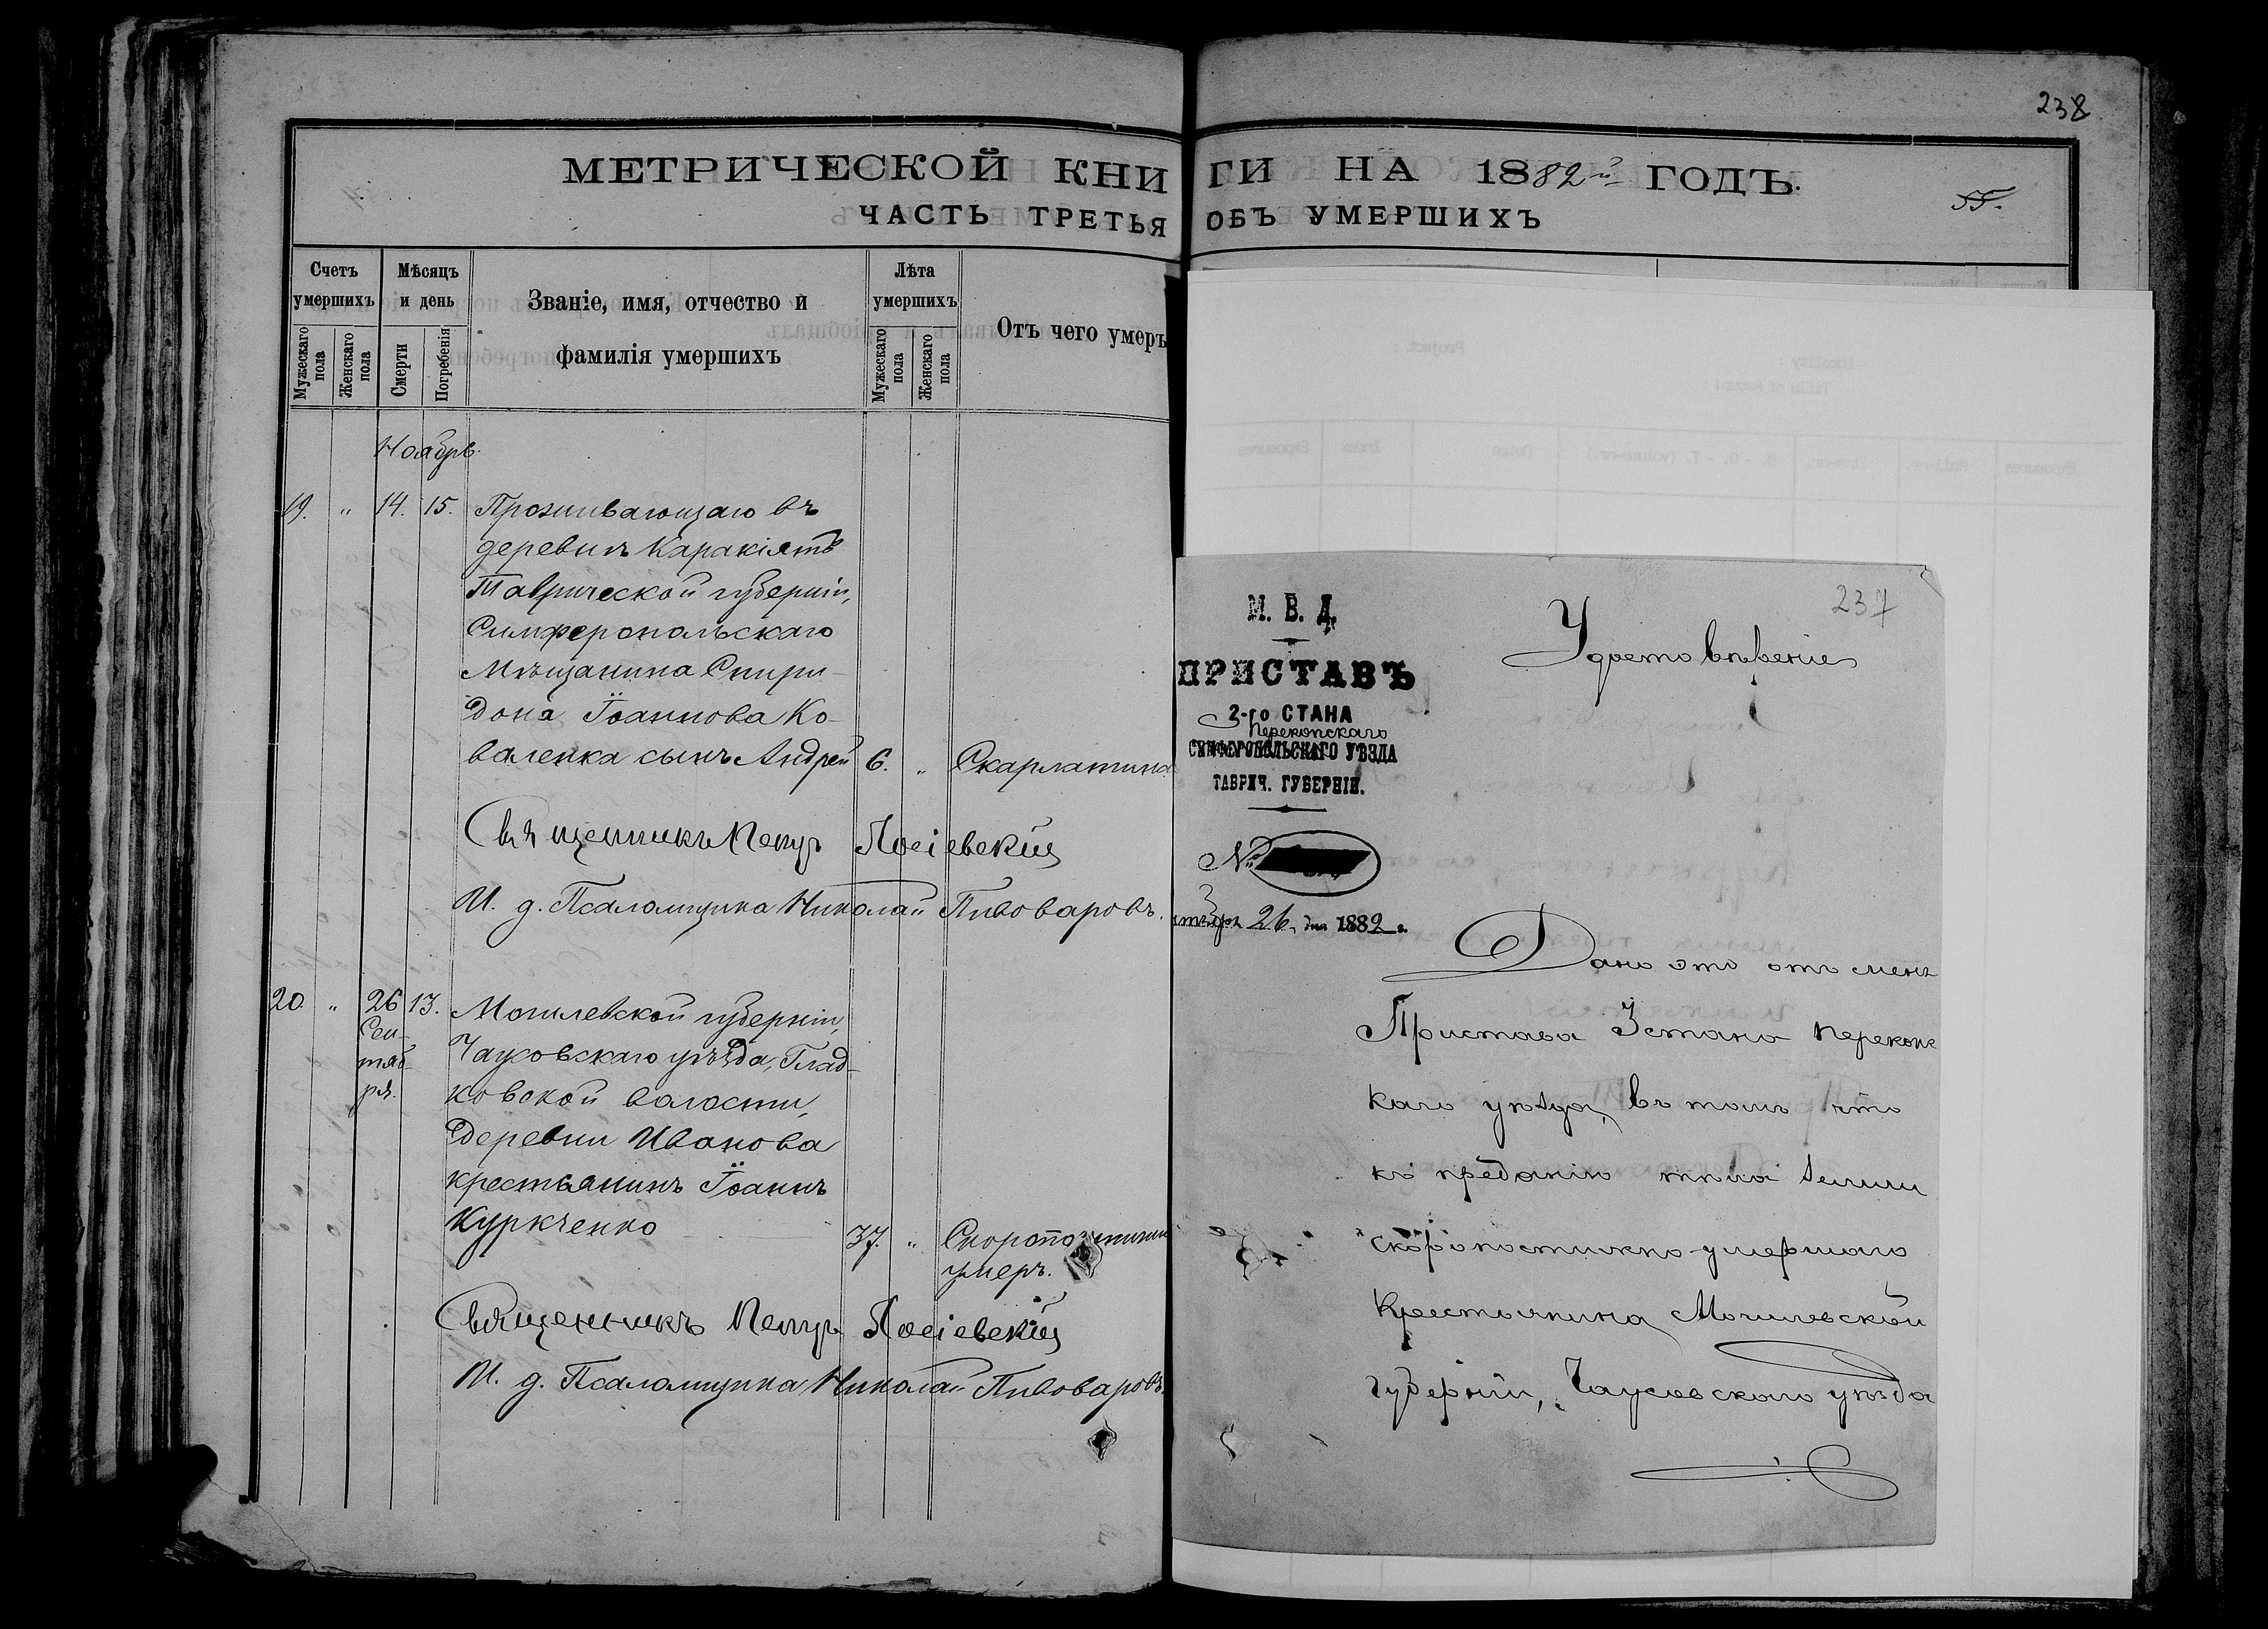 238
МЕТРИЧЕСКОЙ КНИГИ НА 1882й ГОДЪ.
55.
ЧАСТЬ ТРЕТЬЯ ОБЪ УМЕРШИХЪ
Счетъ умершихъ
Мѣсяцъ и день
Званіе, имя, отчество и фамилія умершихъ
Лѣта умершихъ
Отъ чего умеръ
Мужескаго пола
Женскаго пола
Смерти
Погребенія
Мужескаго пола
Женскаго пола
Ноябрь.
19. " 14. 15. Проживающаго въ
деревнѣ Каракіятъ
Таврической губерніи,
Симферопольскаго
Мѣщанина Спири-
дона Іоаннова Ко-
валенка сынъ Андрей 6. " Скарлатина
Священникъ Петръ
И. д. Псаломщика Николай Пивоваровъ.
20. " 26 13. Могилевской губерніи,
Сен-
тяб-
ря.
Чаусовскаго уѣзда, Глад-
ковской волости,
деревни Иванова
крестьянинъ Іоаннъ
Куркченко 37. " Скоропостижно
умеръ.
Священникъ Петръ
И. д. Псаломщика Николай Пивоваровъ.
237
М. В. Д.
ПРИСТАВЪ
2-го СТАНА
Перекопскаго
СИМФЕРОПОЛЬСКАГО УѢЗДА
ТАВРИЧ. ГУБЕРНІИ.
№
26 дня 1882 г.
Удостовѣреніе
Дано это отъ меня
Пристава 3 стана Перекопс
каго уѣзда, въ томъ что
къ преданію тѣла земли
скоропостижно-умершаго
Крестьянина Могилевской
губерніи, Чаусовскаго уѣзда